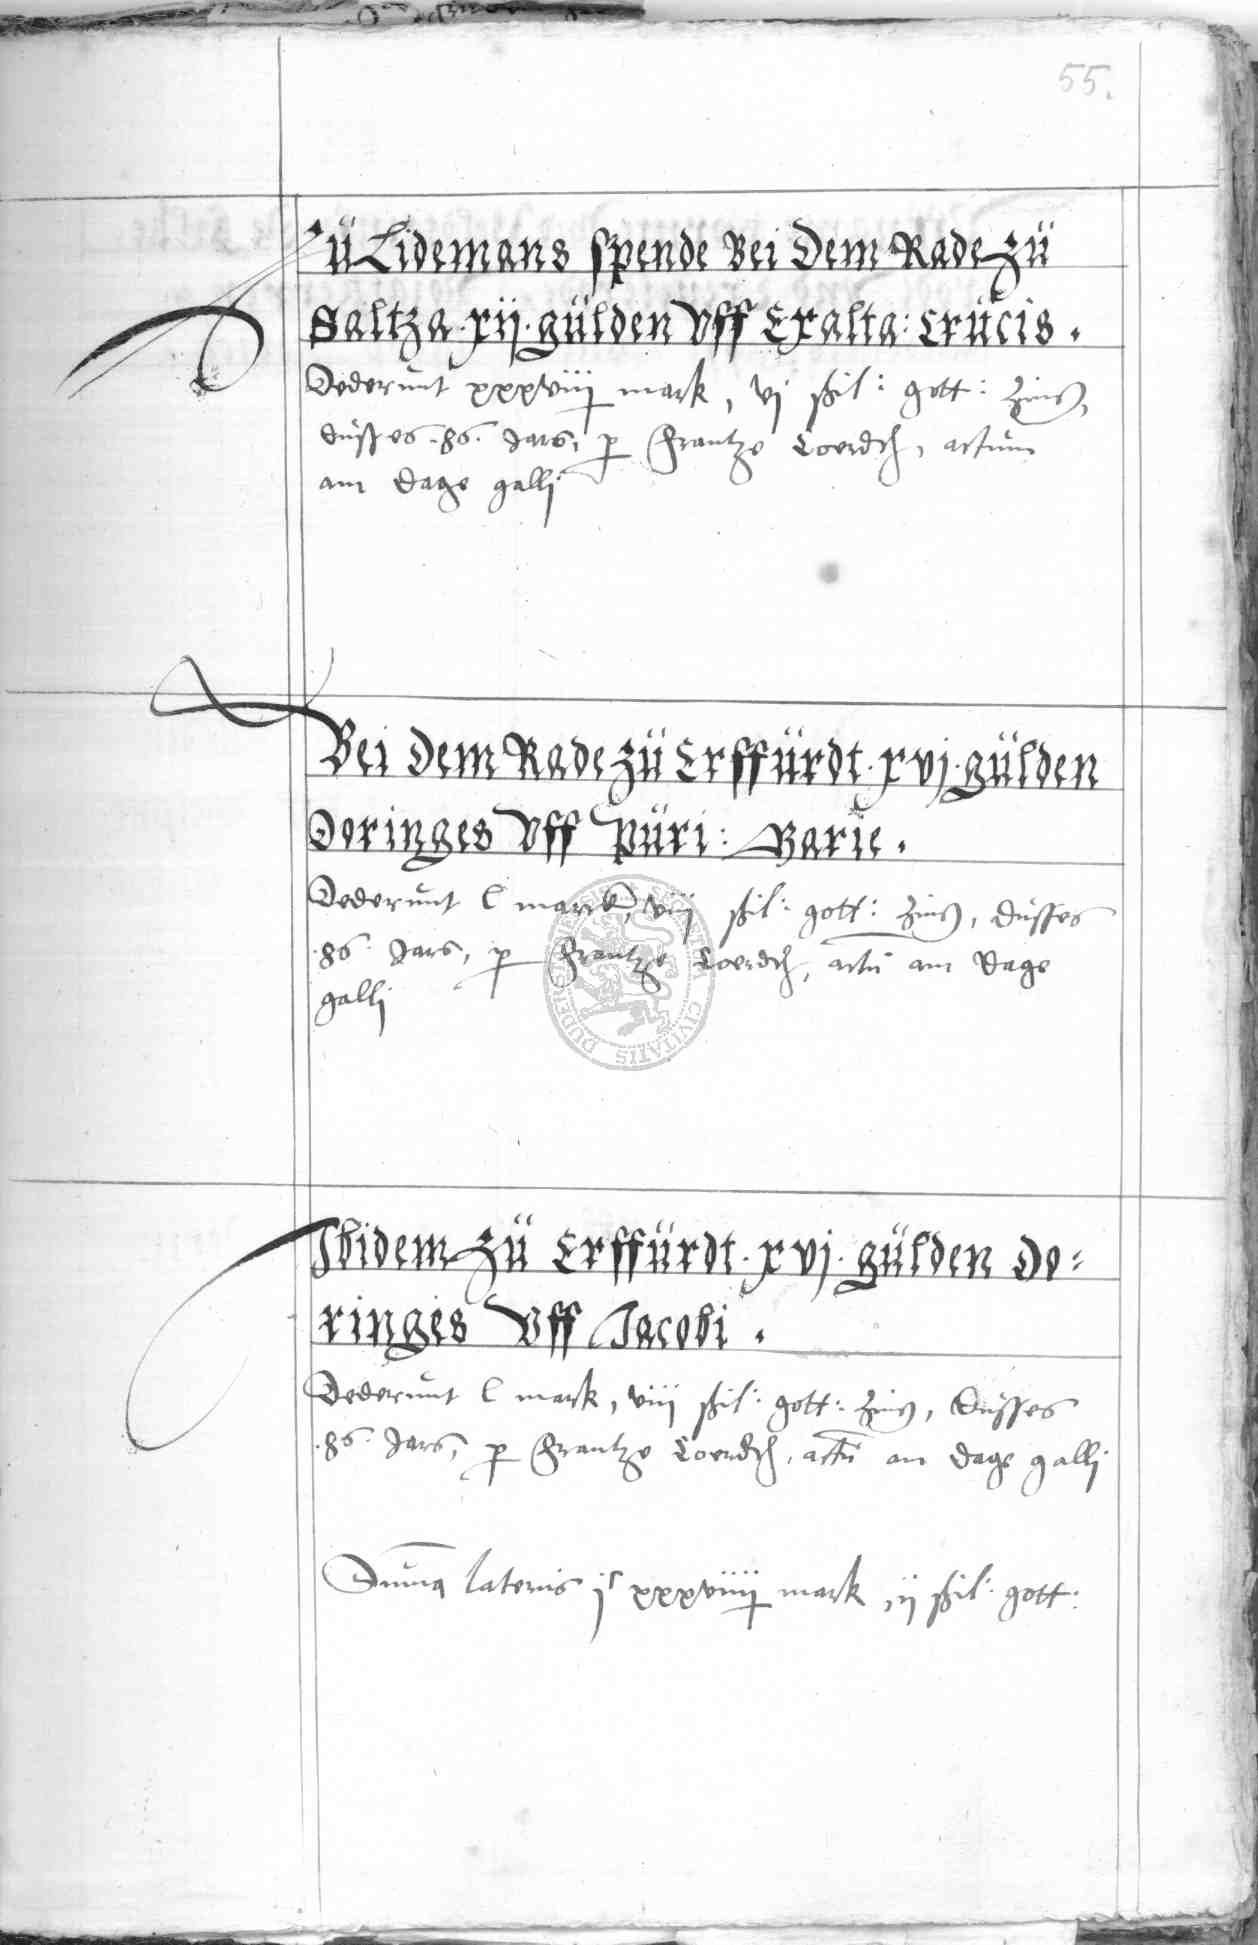 55.
Zü Lidemans spende Bei Dem Rade zü
Saltza . xij . gülden Vff Exalta : Crücis .
Dederunt xxxviiij mark, vj shil : gott : Zins,
dusses .86. Jars, p Frantze Coerdh, actum
am dage galli
Bei Dem Rade zü Erffürdt . xvj . gülden
Doringes Vff Püri : Marie .
Dederunt l mark, viij shil : gott : Zins, dusses
.86. Jars, p Frantze Coerdh, actu am dage
galli
CIVITATIS
Ibidem zü Erffürdt . xvj . gülden Do=
ringes Vff Jacobi .
Dederunt l mark, viij shil : gott : Zins, dusses
.86. Jars, p Frantze Coerdh, actu am dage galli
Suma lateris jc xxxviiij mark, ij shil : gott :